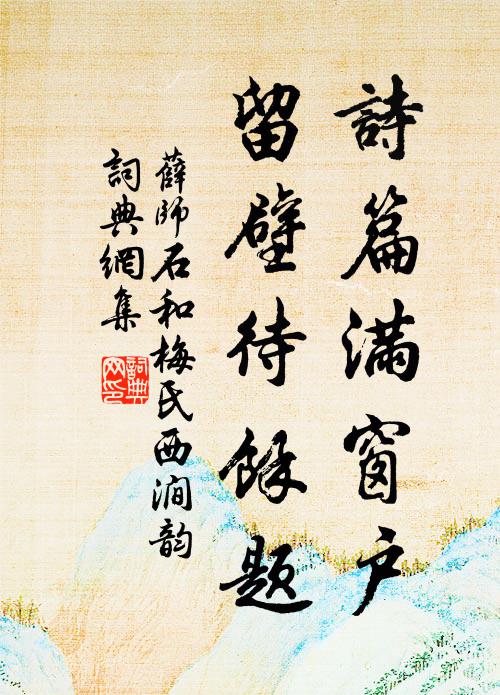 詩篇滿窗戶
留壁待餘題
薛師石和梅氏西澗韵
詞典網集
詞典网印